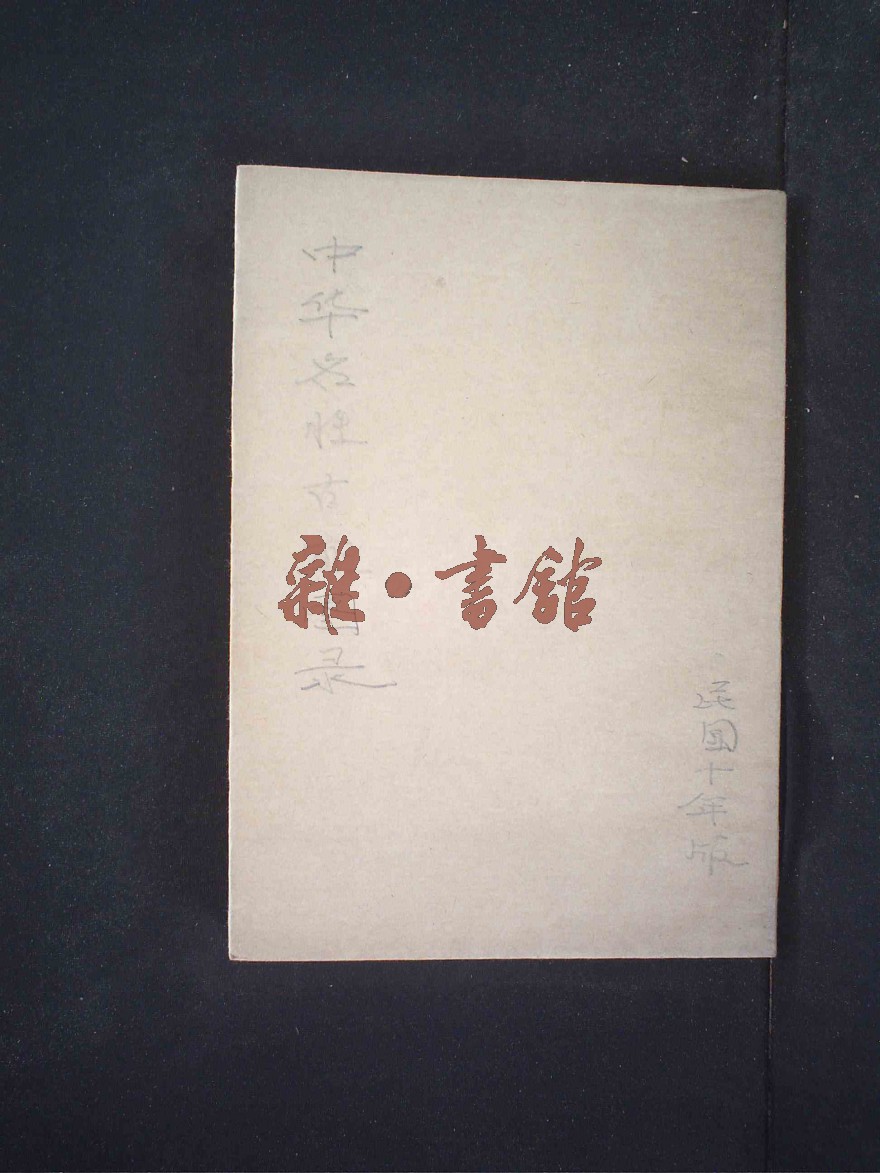 中华名胜古录
雜·書館
民国十年版